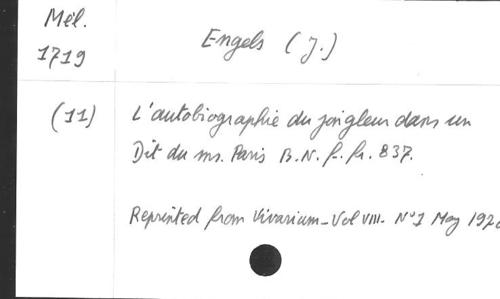 Mél.
1719
Engels (J.)
(11)
L'autobiographie du jongleur dans un
Dit du ms. Paris B.N. f. fr. 837.
Reprinted from Vivarium - Vol VIII. N°1 May 197